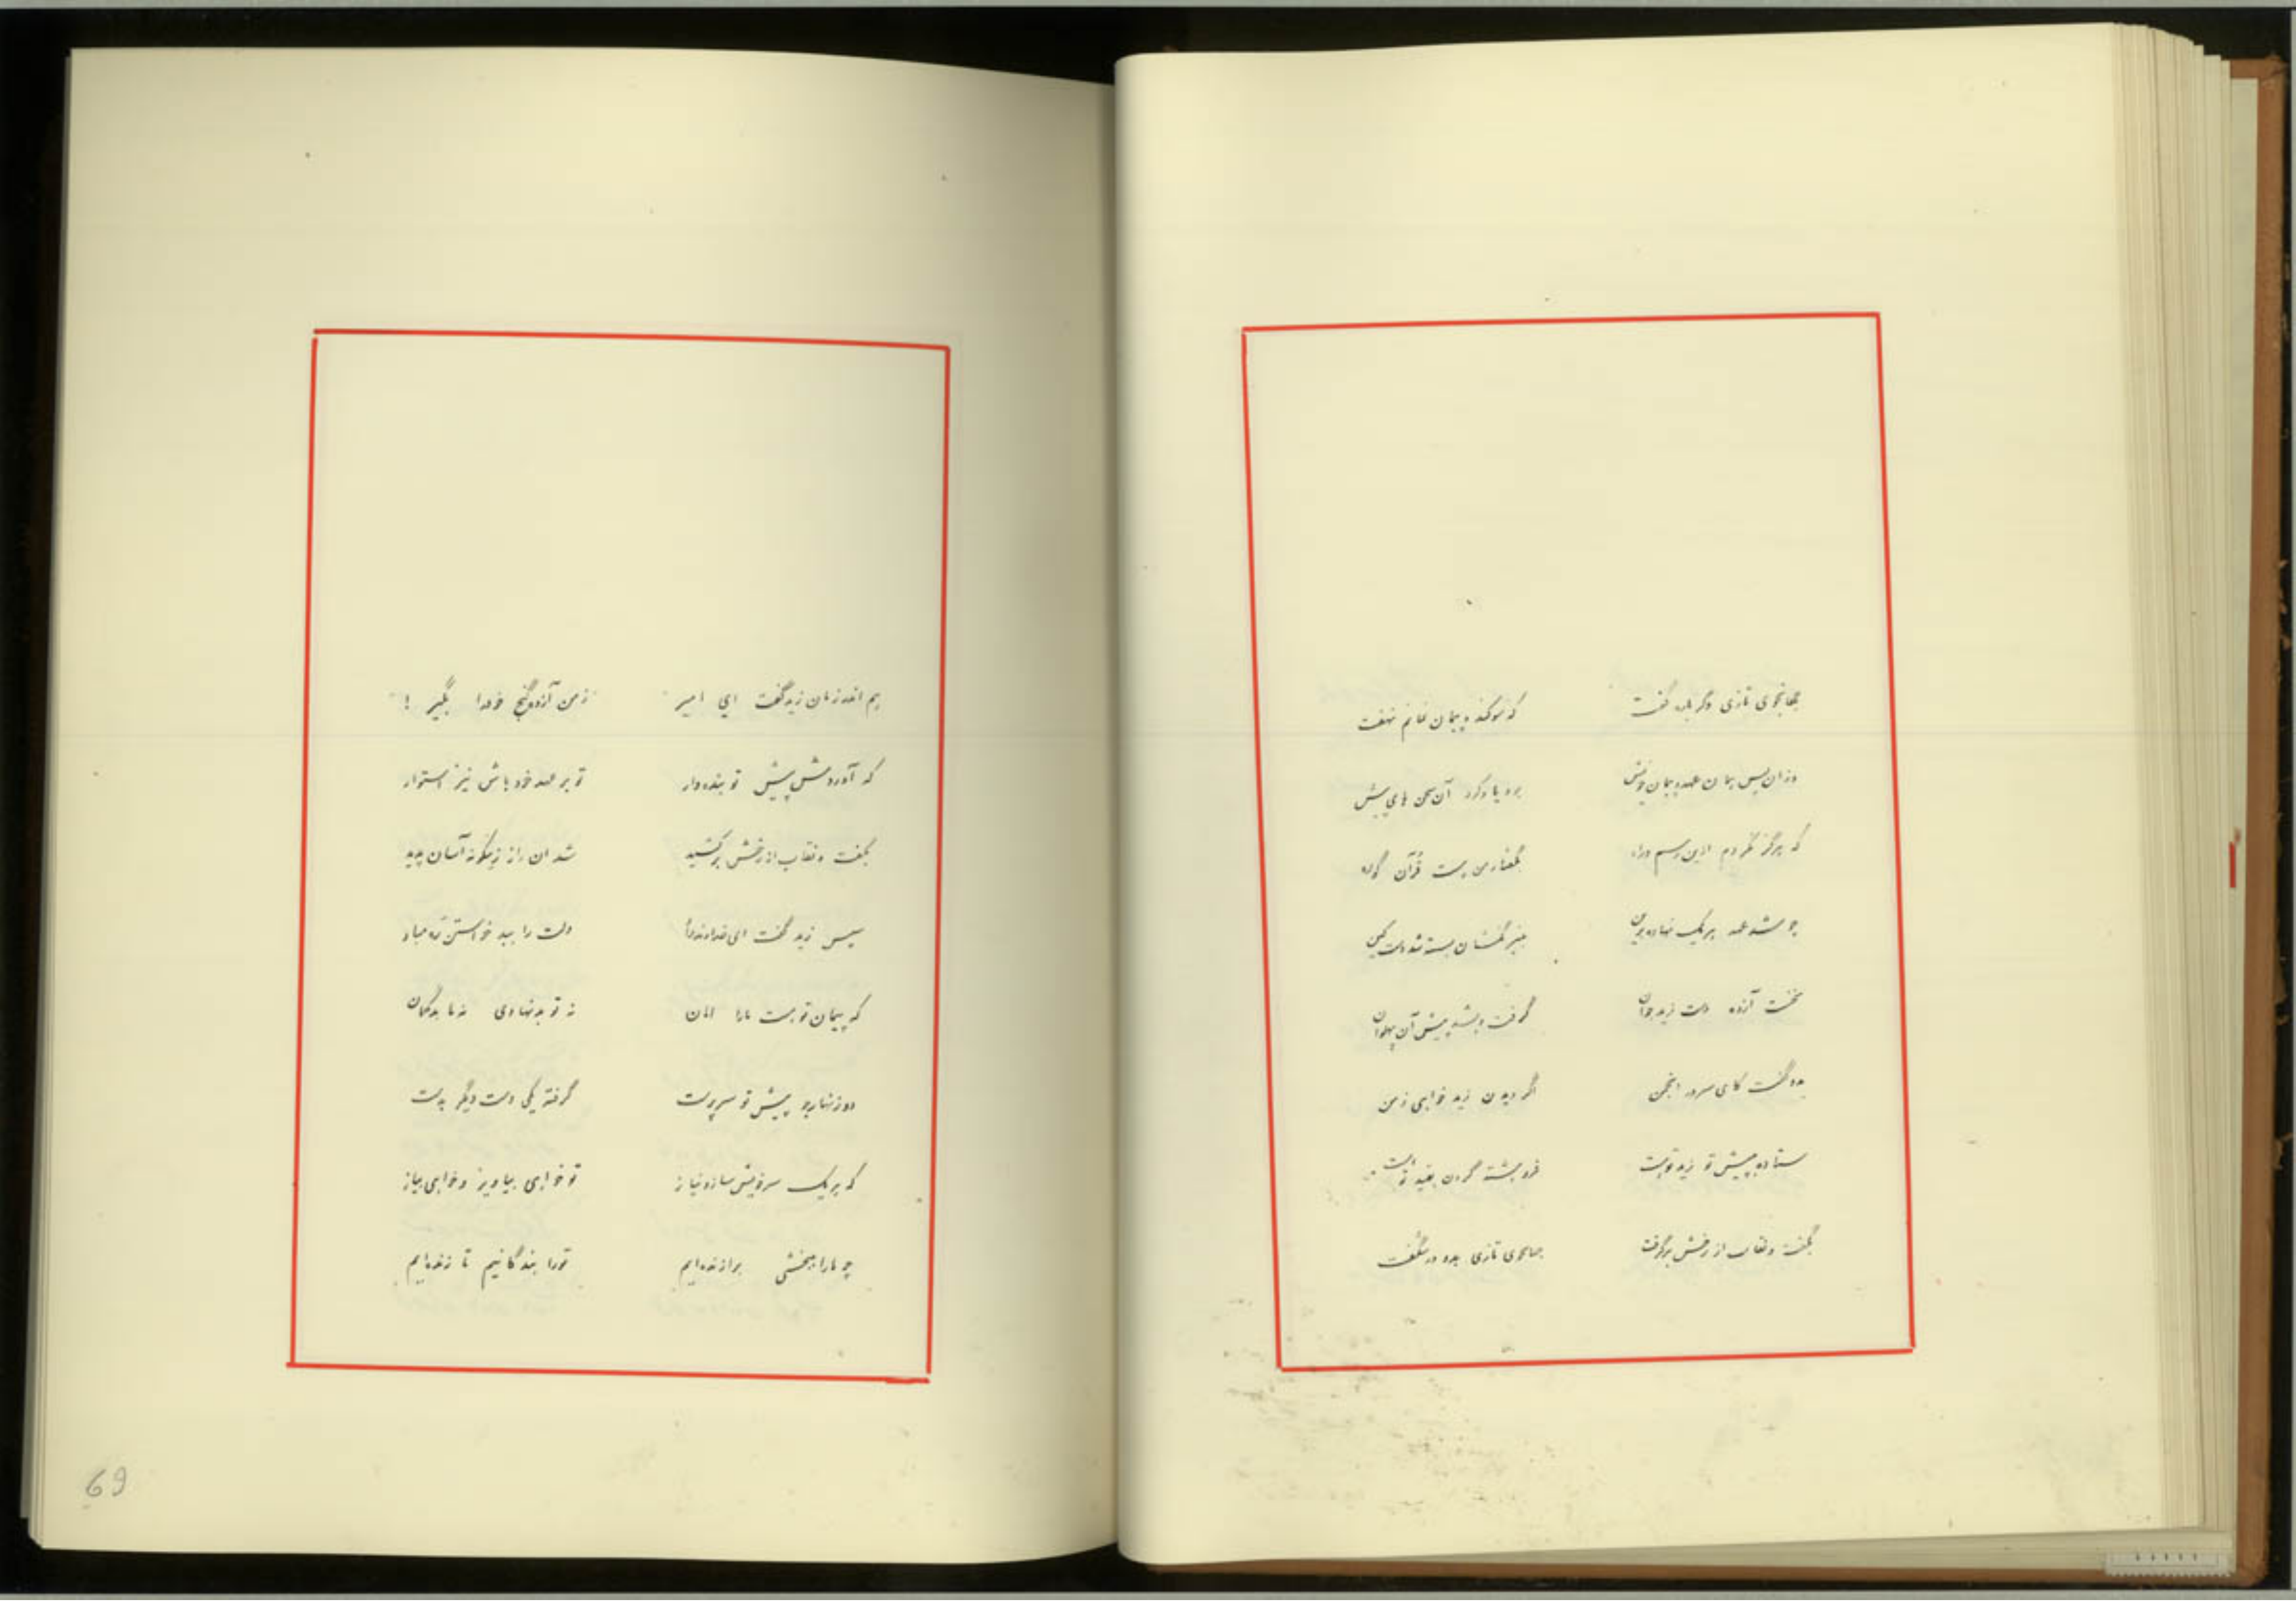 جهانجوی تازی دگر باره گفت
که سوگند و پیمان نمانم نهفت
وزان پس همان عهد و پیمان خویش
بدو یاد کرد آن سخن های پیش
که هرگز نگردم ازین رسم و راه
بگفتار من هست قرآن گواه
چو شد عهد هر یک نهاده برین
بنیرنگشان بسته شد دست کین
نخست آزده دست زید جوان
گرفت و بشد پیش آن پهلوان
بدو گفت کای سرور انجمن
اگر دیدن زید خواهی ز من
ستاده پیش تو زید توست
فرو هشته گردن بقید تو است
بگفت و نقاب از رخش برگرفت
جهانجوی تازی بدو در شگفت
هم اندر زمان زید گفت ای امیر
ز من آزده گنج خود را بگیر !
که آوردمش پیش تو بنده وار
تو بر عهد خود باش نیز استوار
بگفت و نقاب از رخش برکشید
شد آن راز زینگونه آسان پدید
سپس زید گفت ای خداوند داد
دلت را ببد خواستن ره مباد
که پیمان تو هست ما را امان
نه تو بد نهادی نه ما بدگمان
دو زنهارجو پیش تو سرپرست
گرفته یکی دست دیگر بدست
که هر یک سر خویش سازد نیاز
تو خواهی بیاویز و خواهی بیاز
چو ما را ببخشی برازنده ایم
تو را بندگانیم تا زنده ایم
69